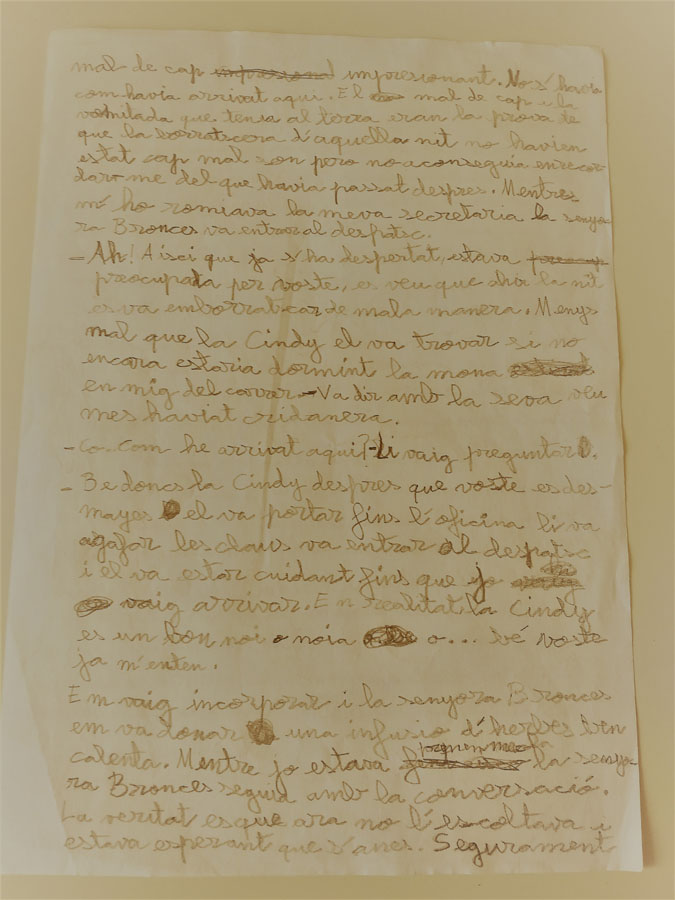 mal de cap impresionant. No s'havia
com havia arrivat aqui. El mal de cap i la
vomitada que tenia al terra eran la prova de
que la borratxera d'aquella nit no havien
estat cap mal son pero no aconseguia enrecor-
dar-me del que havia passat despres. Mentres
m'ho romiava la meva secretaria la senyo-
ra Bronces va entrar al despatx.
- Ah! Aisci que ja s'ha despertat, estava
preocupada per voste, es veu que ahir la nit
es va emborratxar de mala manera. Menys
mal que la Cindy el va trovar si no
encara estaria dormint la mona
en mig del carrer. - Va dir amb la seva veu
mes haviat cridanera.
- Co..com he arrivat aqui? - Li vaig preguntar.
- Be doncs la Cindy despres que voste es des-
mayes el va portar fins l'oficina li va
agafar les claus va entrar al despatx
i el va estar cuidant fins que jo
vaig arrivar. En realitat la Cindy
es un bon noi o noia o... bé voste
ja m'enten.
Em vaig incorporar i la senyora Bronces
em va donar una infusio d'herbes ben
calenta. Mentre jo estava la senyo-
ra Bronces seguia amb la conversació.
La veritat es que ara no l'escoltava i
estava esperant que s'anes. Segurament